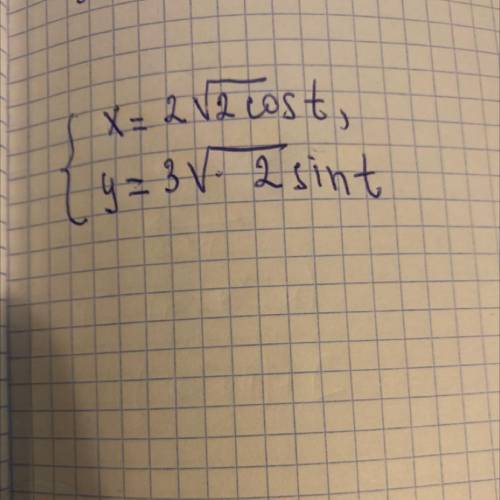 x = 2√2 cos t,
y = 3√2 sin t